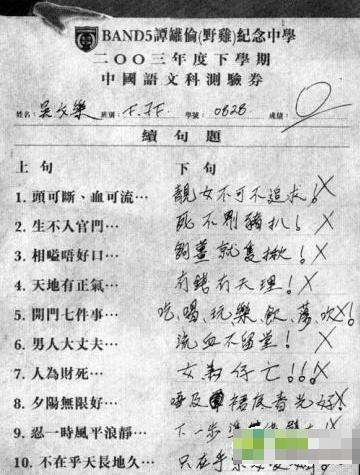 BAND5譚鑵倫(野雞)紀念中學
二〇〇三年度下學期
中國語文科測驗券
姓名: 吳 樂 班別: 學號: 0828 成績: 0
續句題
上句 下句
1. 頭可斷、血可流… 靚女不可不追求!
2. 生不入官門… 死不 豬扒!
3. 相嗌唔好口… 夠薑就隻揪!
4. 天地有正氣… 有錢有天理!
5. 開門七件事… 吃、喝、玩、樂、飲、蕩、吹!
6. 男人大丈夫… 流血不留堂!
7. 人為財死… 女為仔亡!!!
8. 夕陽無限好…
9. 忍一時風平浪靜… 下一步
10. 不在乎天長地久… 只在乎